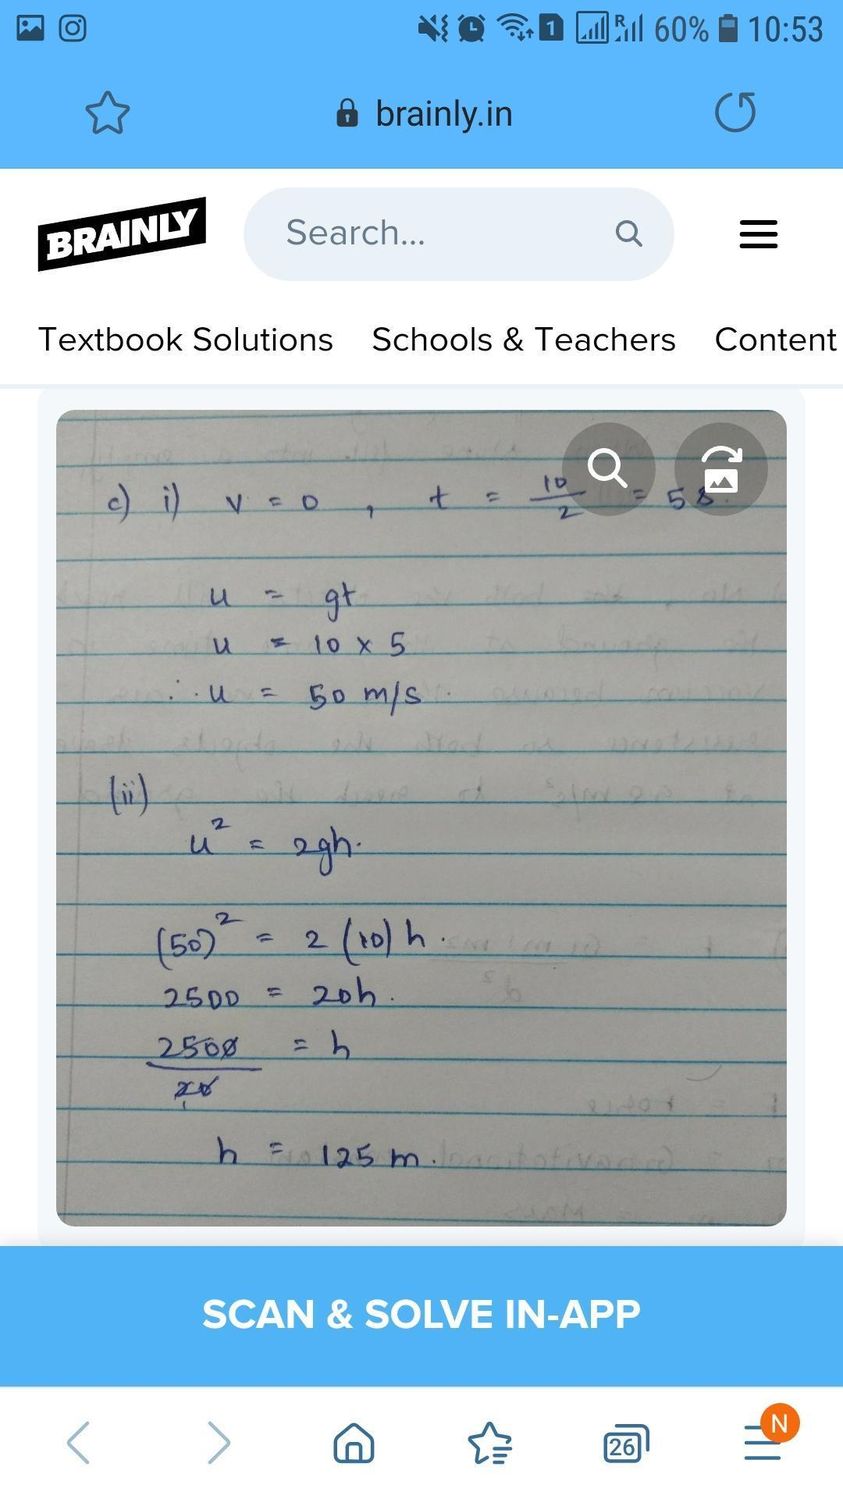 1 R 60% 10:53
brainly.in
BRAINLY Search...
Textbook Solutions Schools & Teachers Content
c) i) v = 0 , t = 10/2 = 5s.
u = gt
u = 10 x 5
∴ u = 50 m/s.
(ii)
u² = 2gh.
(50)² = 2 (10) h.
2500 = 20h.
2500/20 = h
h = 125 m.
SCAN & SOLVE IN-APP
26 N